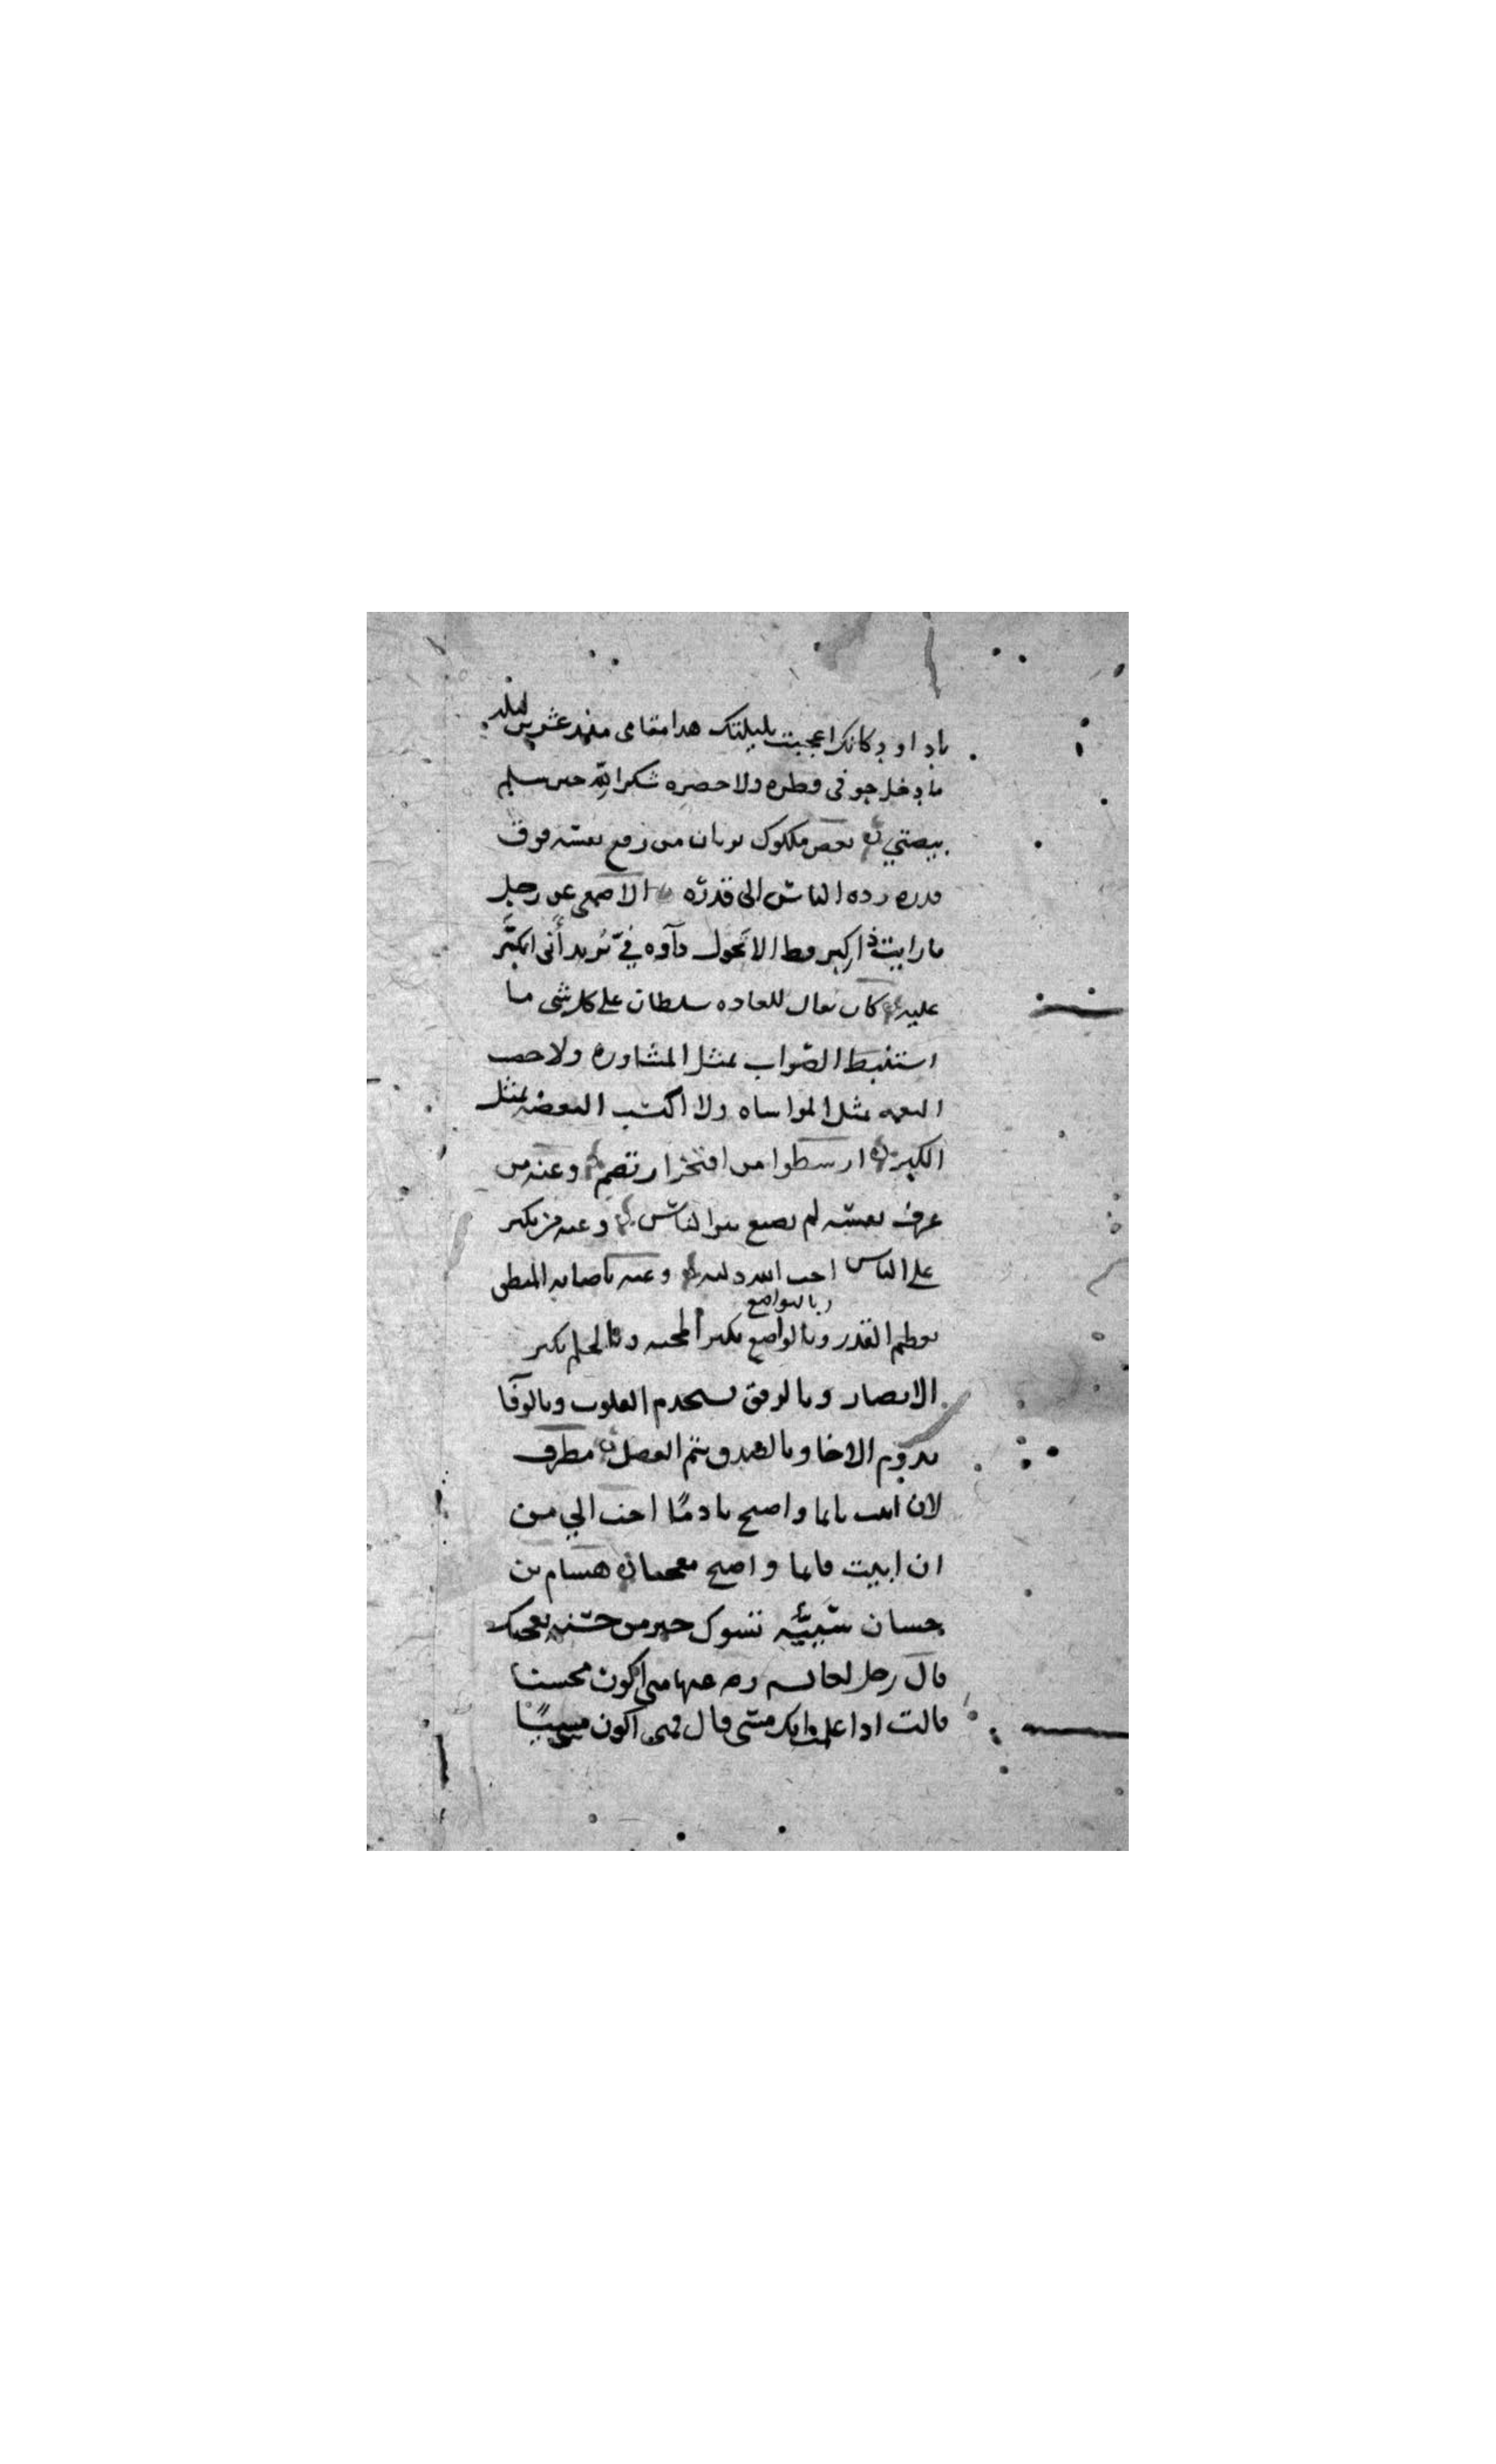 ياداود كانك اعجبت بليلتك هذا مقامي منذ عشرين ليلة
مادخل جوفي قطرة ولا خضرة شكرا لله حين سلم
بيضتي بعض ملوك يونان من رفع نفسه فوق
قدره رده الناس الى قدره الاصمعي عن رجل
ما رايت ذا كبر قط الا تحول داؤه فيّ يريد أني اتكبّر
عليه كان يقال للعادة سلطان على كل شي ما
استنبط الصواب بمثل المشاورة ولا حصنت
النعمة بمثل المواساه ولا اكتسبت البغضة بمثل
الكبر ارسطوا من افتخر ارتطم وعنه من
عرف نفسه لم يضع بين الناس وعنه من تكبر
على الناس احب الناس ذلته وعنه باصابة المنطق
يعظم القدر وبالتواضع تكثر المحبة وبالحلم تكثر
وبالتواضع
الانصار وبالرفق تستخدم القلوب وبالوفا
يدوم الاخا وبالصدق يتم الفضل مطرف
لان ابيت نايما واصبح نادمًا احب الي من
ان ابيت قايما واصبح معجبا هشام بن
حسان سيئة تسوك خير من حسنة تعجبك
قال رجل لعايشة رضي الله عنها متى اكون محسنا
قالت اذا علمت انك مسي قال فمتى اكون مسيئًا